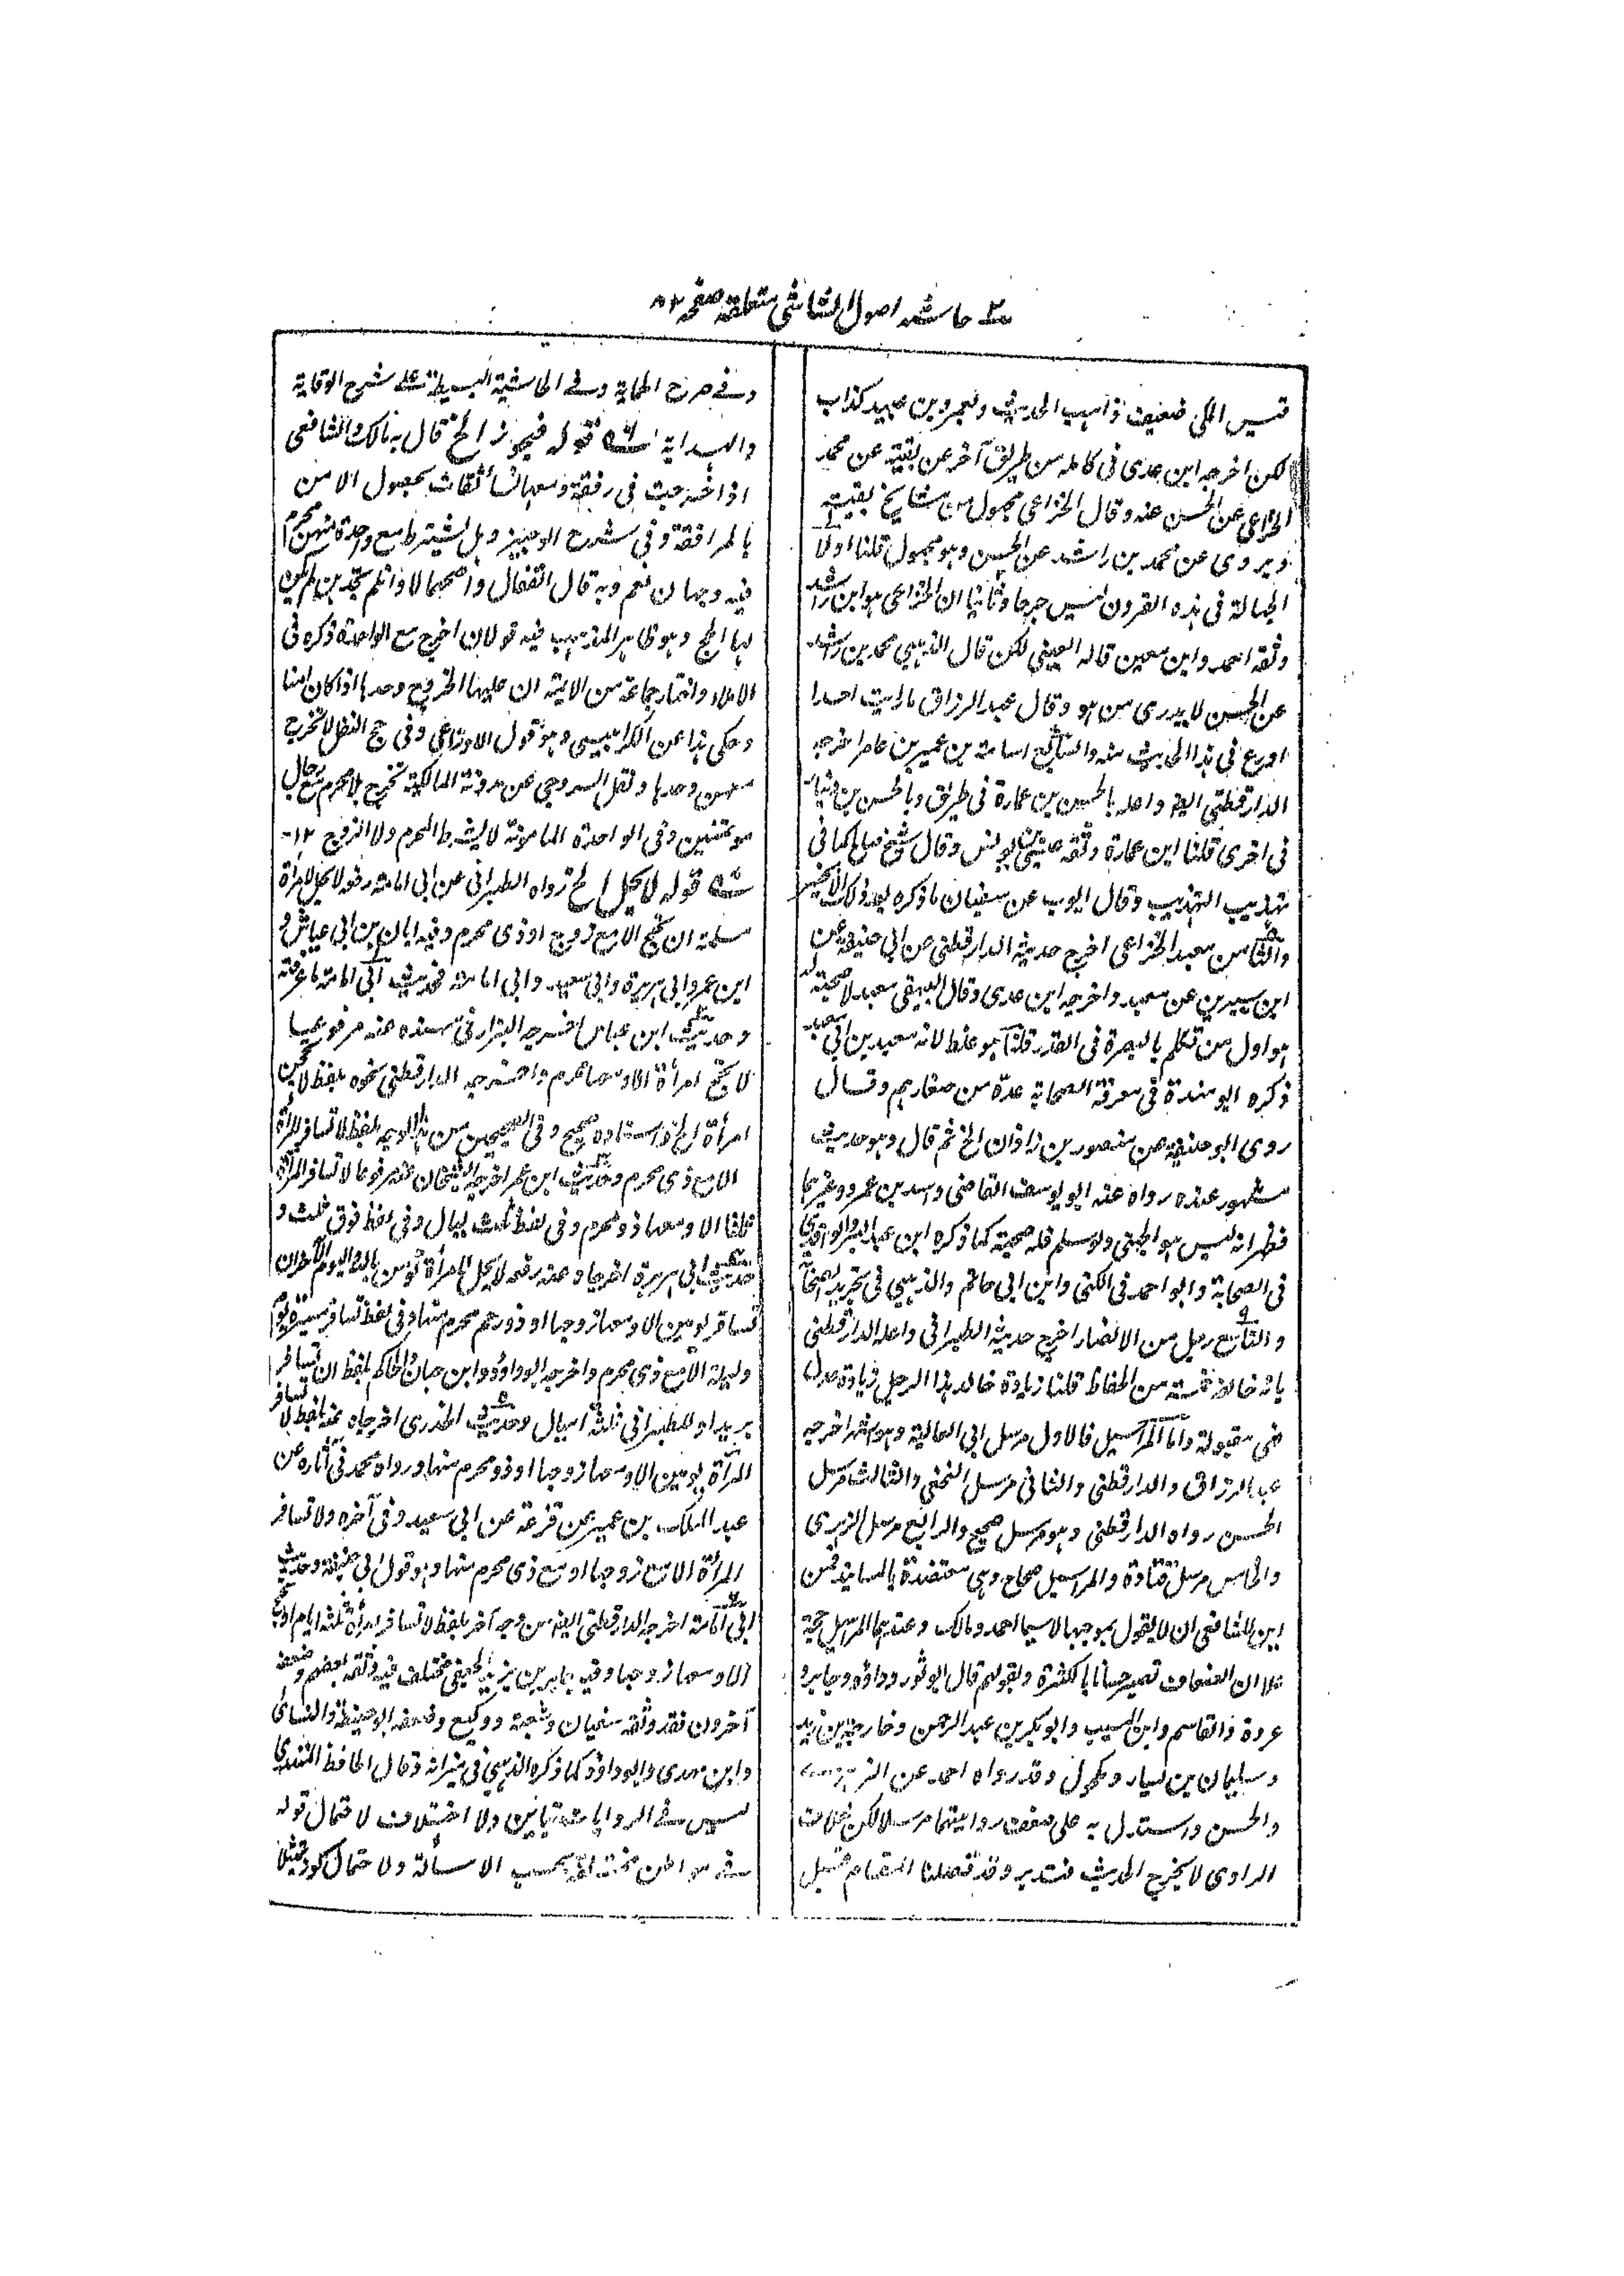 حاشیہ اصول الشاشی متعلقہ صفحہ ٨٢
قيس المكى ضعيف ذاهب الحديث وبعمرو بن عبيد كذاب
لكن اخرجه ابن عدى فى كامله من طريق آخر عن بقية عن محمد
الخزاعى عن الحسن عنه وقال الخزاعى مجهول من مشايخ بقية
ويروى عن محمد بن راشد عن الحسن وهو مجهول قلنا اولا
الجهالة فى هذه القرون ليس جرحا وثانيا ان الخزاعى هو ابن راشد
وثقه احمد وابن معين قاله العينى لكن قال الذهبى محمد بن راشد
عن الحسن لا يدرى من هو وقال عبد الرزاق ما رايت احدا
اورع فى هذا الحديث منه والسابع اسامة بن عمير بن عامر اخرجه
الدارقطنى ايضا واعله بالحسن بن عمارة فى طريق وبالحسن بن دينار
فى اخرى قلنا ابن عمارة وثقه عيسى بن يونس وقال شيخ صالح كما فى
تهذيب التهذيب وقال ايوب عن سفيان ما ذكره بعد ذلك الا بخير
والثامن معبد الخزاعى اخرج حديثه الدارقطنى عن ابى حنيفة عن
ابن سيرين عن معبد واخرجه ابن عدى وقال البيهقى معبد لا صحبة له
هو اول من تكلم بالبصرة فى القدر قلنا هو غلط لانه معبد بن ابى معبد
ذكره ابو مندة فى معرفة الصحابة عدّه من صغارهم وقال
روى ابو حنيفة عن منصور بن زاذان الخ ثم قال وهو حديث
مشهور عنه رواه عنه ابو يوسف القاضى واسد بن عمرو وغيرهما
فظهر انه ليس هو الجهنى ولو سلم فله صحبة كما ذكره ابن عبد البر والواقدى
فى الصحابة وابو احمد فى الكنى وابن ابى حاتم والذهبى فى تجريد الصحابة
والتاسع رجل من الانصار اخرج حديثه الطبرانى واعله الدارقطنى
بانه خالف خمسة من الحفاظ قلنا زيادة خالد هذا الرجل زيادة عدل
فهى مقبولة واما المراسيل فالاول مرسل ابى العالية وهو اشهر اخرجه
عبد الرزاق والدارقطنى والثانى مرسل النخعى والثالث مرسل
الحسن رواه الدارقطنى وهو مرسل صحيح والرابع مرسل الزهرى
والخامس مرسل قتادة والمراسيل صحاح وهى معتضدة بالمسانيد فمن
اين للشافعى ان لا يقول بموجبها لاسيما احمد ومالك وعندهما المراسيل حجة
علا ان الضعاف تصير حسانا بالكثرة وبقولهم قال ابو ثور وداؤد وجابر و
عروة والقاسم وابن المسيب وابو بكر بن عبد الرحمن وخارجة بن زيد
وسليمان بن يسار ومكحول وقد رواه احمد عن
والحسن واستدل به على ضعف روايتهما مرسلا لكن خلاف
الراوى لا يخرج الحديث فتدبر وقد فصلنا المقام قبل
وفے صرح الحماية وفے الحاشية البسيطة علے شرح الوقاية
والهداية قوله فيجوز الخ قال به مالك والشافعى
اذا خرجت فى رفقة ومعها نساء ثقات لحصول الامن
بالمرافقة وفى شرح الوجيز وهل يشترط مع واحدة منهن محرم
فيه وجهان نعم وبه قال القفال واصحهما لا وان لم تجد بن لم يكن
لها الحج وهو ظاهر المذهب فيه قولان اخرج مع الواحدة ذكره فى
الاملاء واختار جماعة من الائمة ان عليها الخروج وحدها اذا كان امنا
وحكى هذا عن الكرابيسى وهو قول الاوزاعى وفى حج النفل لا تخرج
معهن وحدها ونقل السروجى عن مدونة المالكية تخرج بلا محرم مع رجال
مؤتمنين وفى الواحدة المامونة لا يشترط المحرم ولا الزوج ١٢-
قوله لا يحل الخ رواه الطبرانى عن ابى امامة رفعه لا يحل لامرأة
مسلمة ان تحج الا مع زوج او ذى محرم وفيه ابان بن ابى عياش و
ابن عمر وابى هريرة وابى سعيد وابى امامة فحديث ابى امامة ما عرفته
وحديث ابن عباس اخرجه البزار فى مسنده عنه مرفوعا
لا تحج امرأة الا ومعها محرم واخرجه الدارقطنى نحوه بلفظ لا تحجن
امرأة الخ واسناده صحيح وفى الصحيحين من هذا الوجه بلفظ لا تسافر المرأة
الا مع ذى محرم وحديث ابن عمر اخرجه الشيخان عنه مرفوعا لا تسافر المرأة
ثلثا الا ومعها ذو محرم وفى لفظ ثلث ليال وفى لفظ فوق ثلث و
حديث ابى هريرة اخرجاه عنه رفعه لا يحل لامرأة تؤمن بالله واليوم الآخر ان
تسافر يومين الا ومعها زوجها او ذو رحم محرم منها وفى لفظ تسافر مسيرة يوم
وليلة الا مع ذى محرم واخرجه ابو داؤد وابن حبان والحاكم بلفظ ان تسافر
بريدا وللطبرانى ثلثة اميال وحديث الخدرى اخرجاه عنه بلفظ لا تسافر
المرأة يومين الا ومعها زوجها او ذو محرم منها ورواه محمد فى آثاره عن
عبد الملك بن عمير عن قزعة عن ابى سعيد وفى آخره ولا تسافر
المرأة الا مع زوجها او مع ذى محرم منها وهو قول ابى حنيفة وحديث
ابى امامة اخرجه الدارقطنى ايضا من وجه آخر بلفظ لا تسافر امرأة ثلثة ايام او تحج
الا ومعها زوجها وفيه جابر بن يزيد الجعفى مختلف فيه وثقه بعضهم وضعفه
آخرون فقد وثقه سفيان وشعبة ووكيع وضعفه ابو حنيفة والنسائى
وابن مهدى وابو داؤد كما ذكره الذهبى فى ميزانه وقال الحافظ المنذرى
ليس فے الروايات تباين ولا اختلاف لاحتمال قوله
فے مواطن مختلفة بحسب الاسئلة ولاحتمال كونه تمثيلا